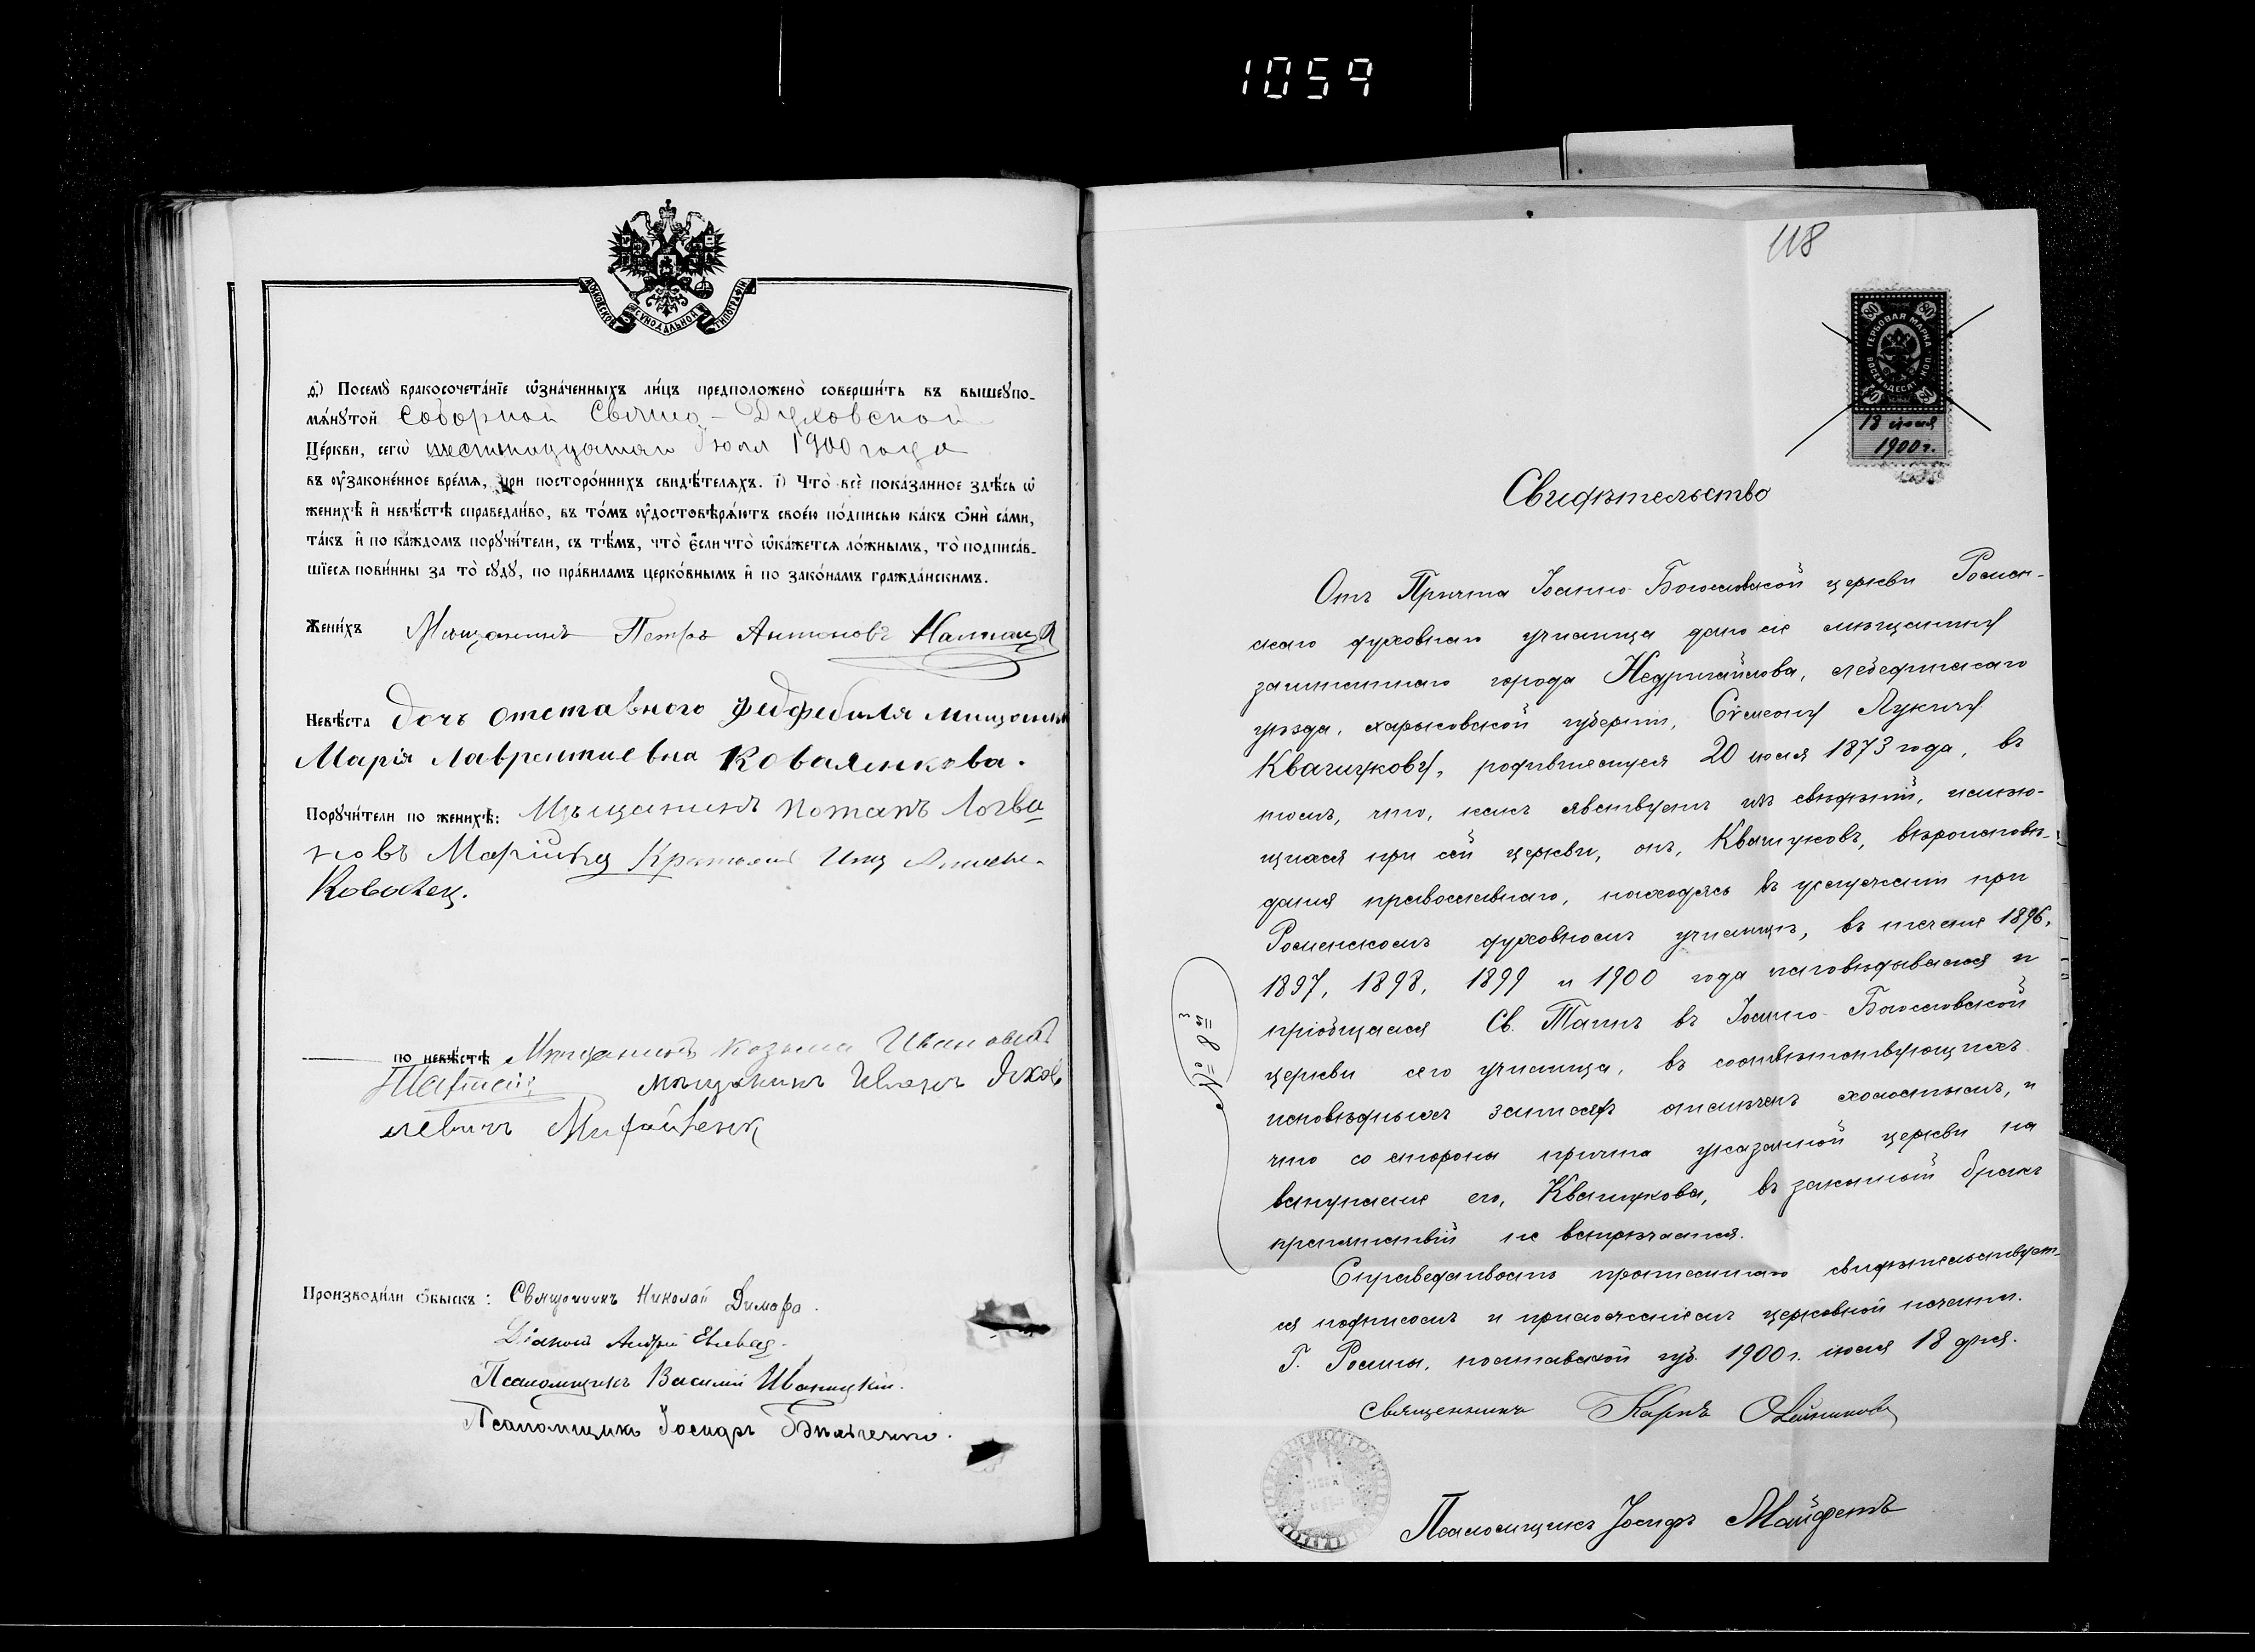 1059
МОСКОВСКОЙ СѴНОДАЛЬНОЙ ТИПОГРАФІИ
д҃) Посемꙋ̀ бракосочета́нїе ѡ҆зна́ченныхъ ли́цъ предположено̀ соверши́ть въ вышеꙋпо-
мѧ́нꙋтой Соборной Свято-Духовской
Це́ркви, сегѡ̀ шестнадцатаго Іюля 1900 года
въ ᲂу҆законе́нное вре́мѧ, при посторо́ннихъ свидѣ́телѧхъ. і҃) Что̀ всѐ пока́занное здѣ́сь ѡ҆
женихѣ̀ и҆ невѣ́стѣ справедли́во, въ то́мъ ᲂу҆достовѣрѧ́ютъ свое́ю по́дписью ка́къ ѻ҆нѝ са́ми,
та́къ и҆ по ка́ждомъ порꙋчи́тели, съ тѣ́мъ, что̀ є҆́сли что̀ ѡ҆ка́жетсѧ ло́жнымъ, то̀ подписа́в-
шїесѧ пови́нны за то̀ сꙋдꙋ̀, по пра́виламъ церко́внымъ и҆ по зако́намъ гражда́нскимъ.
Жени́хъ Мѣщанинъ Петръ Антоновъ
Невѣ́ста дочь отставного Фельдфебеля
Марія Лаврентиевна Коваленкова.
Порꙋчи́тели по женихѣ̀: Мѣщанинъ Потапъ Логви
новъ
Ковалец.
по невѣ́стѣ Мѣщанинъ Козьма Ивановъ
мѣщанинъ Иванъ Яков
левичъ
Производи́ли ѻ҆́быскъ: Священникъ Николай Димара.
Діаконъ Андрей
Псаломщикъ Василій Иваницкій.
Псаломщикъ Іосифъ Бѣльченко.
118
ГЕРБОВАЯ МАРКА
ВОСЕМЬДЕСЯТ КОП.
80
18 июля
1900 г.
Свидѣтельство
Отъ Причта Іоанно-Богословской церкви Ромен-
скаго духовнаго училища дано сіе мѣщанину
заштатнаго города Недригайлова, лебединскаго
уѣзда, харьковской губерніи, Сѵмеону Лукичу
Квашукову, родившемуся 20 июля 1873 года, въ
томъ, что, какъ явствуетъ изъ свѣдѣній, имѣю-
щихся при сей церкви, онъ, Квашуковъ, вѣроисповѣ-
данія православнаго, находясь въ услуженіи при
Роменскомъ духовномъ училищѣ, въ теченіе 1896,
1897, 1898, 1899 и 1900 года исповѣдывался и
пріобщался Св. Таинъ въ Іоанно-Богословской
церкви сего училища, въ соотвѣтствующихъ
исповѣдныхъ записяхъ отмѣченъ холостымъ, и
что со стороны причта указанной церкви на
вступленіе его, Квашукова, въ законный бракъ
препятствій не встрѣчается.
Справедливость прописаннаго свидѣтельствует-
ся подписомъ и приложеніемъ церковной печати.
Г. Ромны, полтавской губ. 1900 г. июля 18 дня.
№ 8й
Священникъ Карпъ Олейниковъ
Псаломщикъ Іосифъ Майфетъ